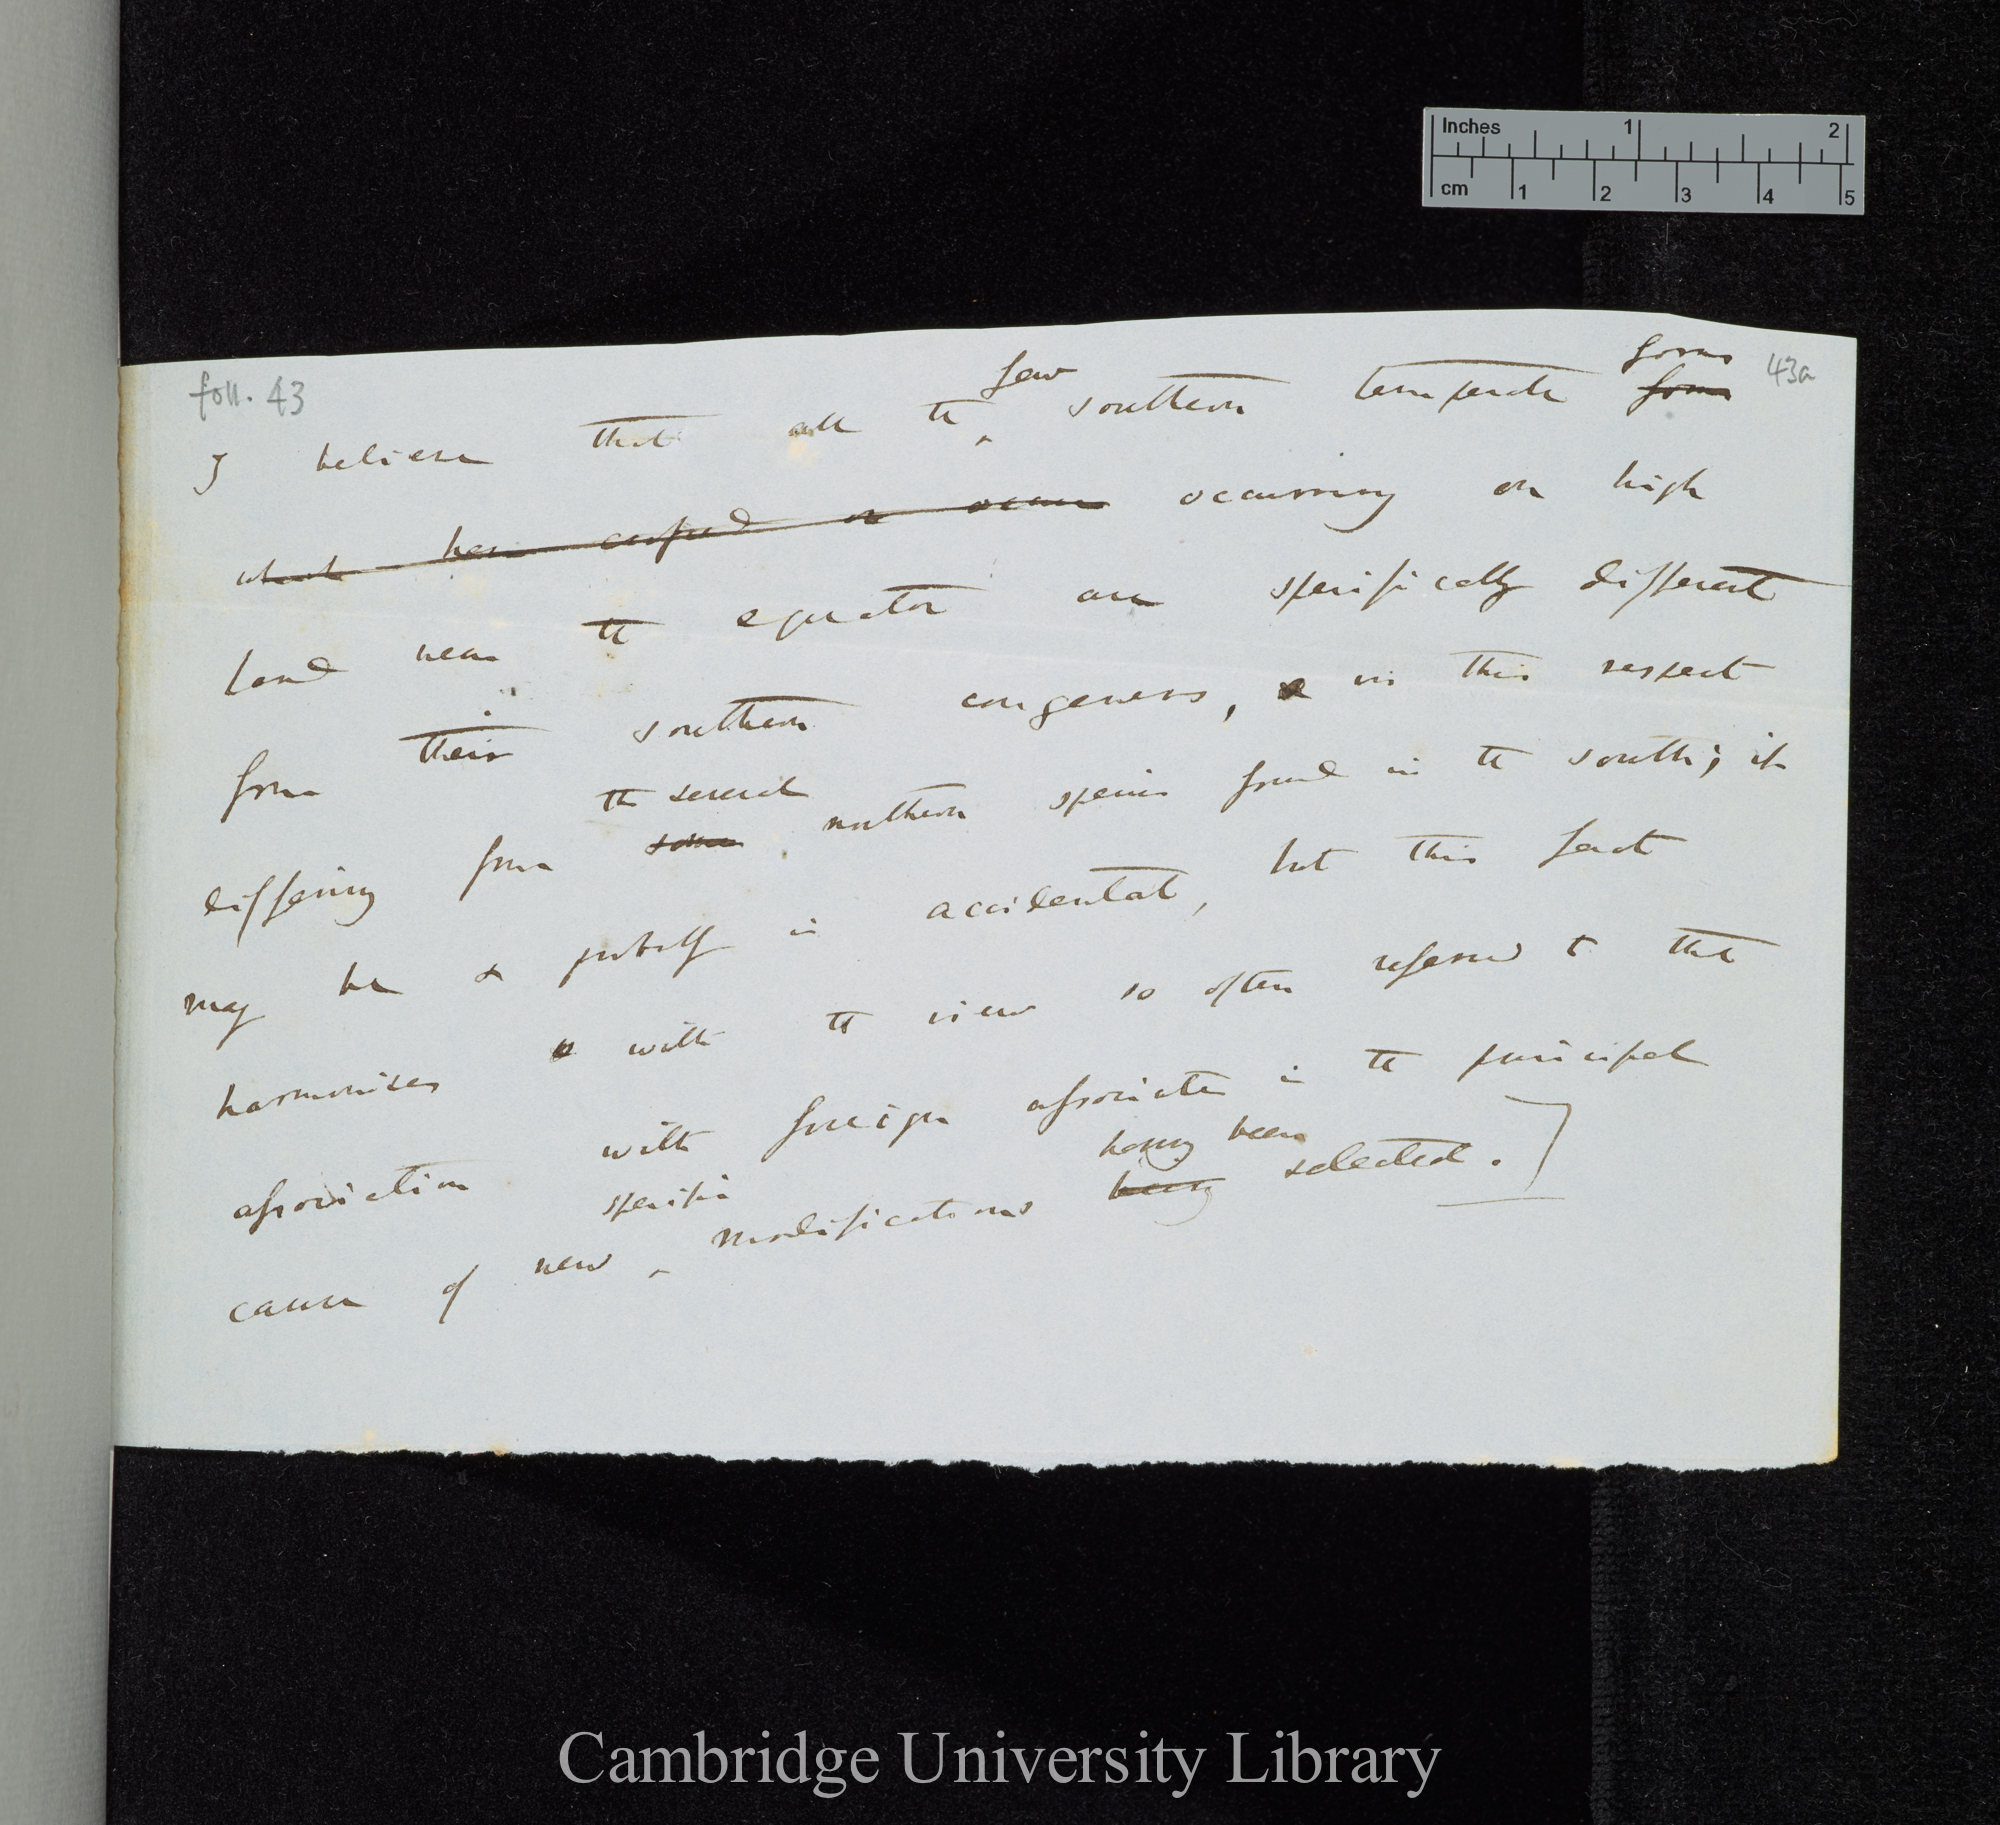 Inches 1 2
cm 1 2 3 4 5
foll. 43
43a
few forms
I believe that all the ^ southern temperate form
which have crossed or occur occurring on high
land near the equator are specifically different
from their southern congeners, & in this respect
the several
differing from some northern species found in the south; it
may be & probably is accidental, but this fact
harmonises with the view so often referred to that
association with foreign associates is the principal
specific having been
cause of new ^ modifications being selected.]
Cambridge University Library